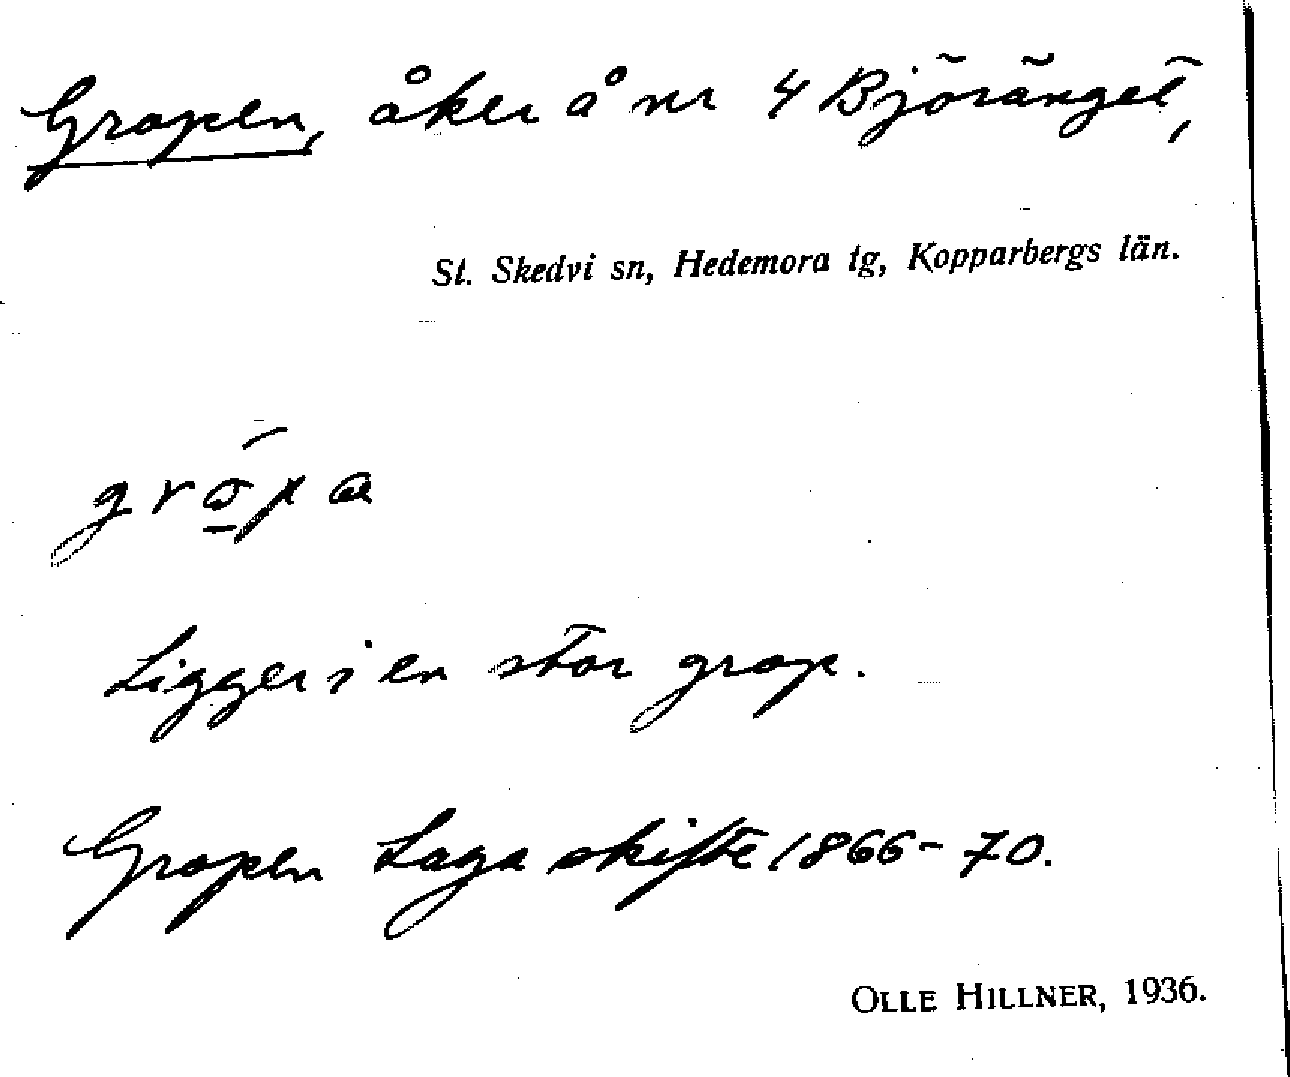 Gropen, åker å nr 4 Björänget,
St. Skedvi sn, Hedemora tg, Kopparbergs län.
Ligger i en stor grop.
Gropen Laga skifte 1866-70.
OLLE HILLNER, 1936.